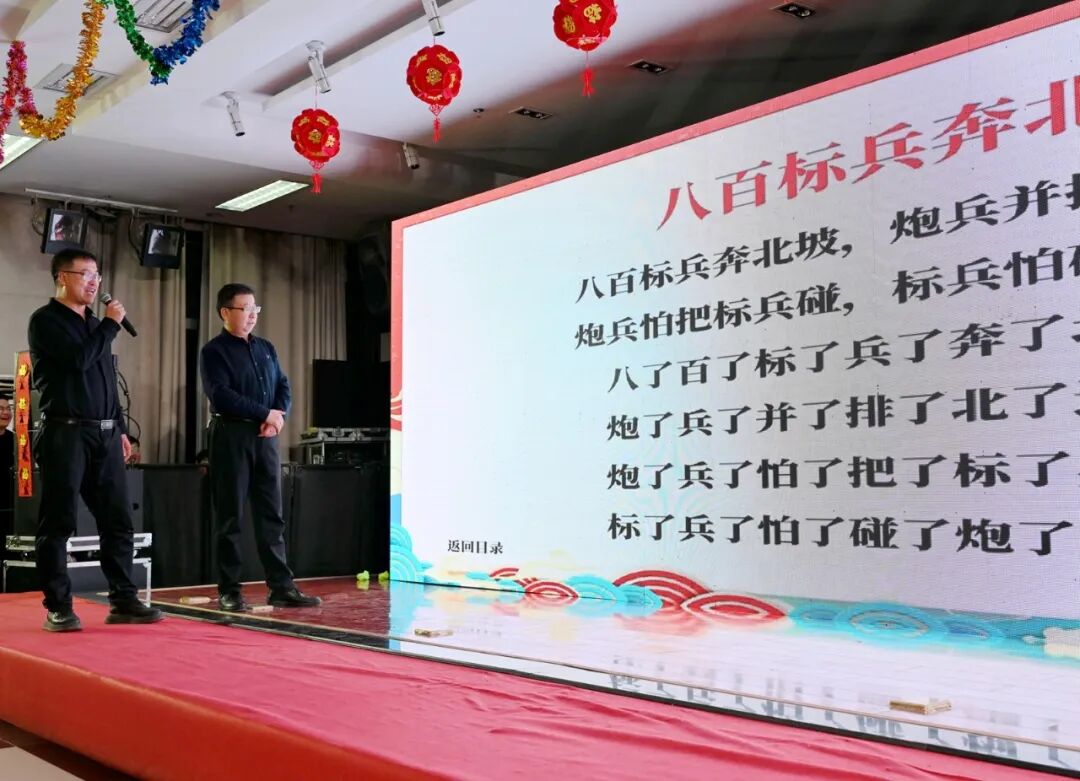 八百标兵奔北
八百标兵奔北坡，炮兵并排
炮兵怕把标兵碰，标兵怕碰
八了百了标了兵了奔了北
炮了兵了并了排了北了
炮了兵了怕了把了标了
标了兵了怕了碰了炮了
返回目录